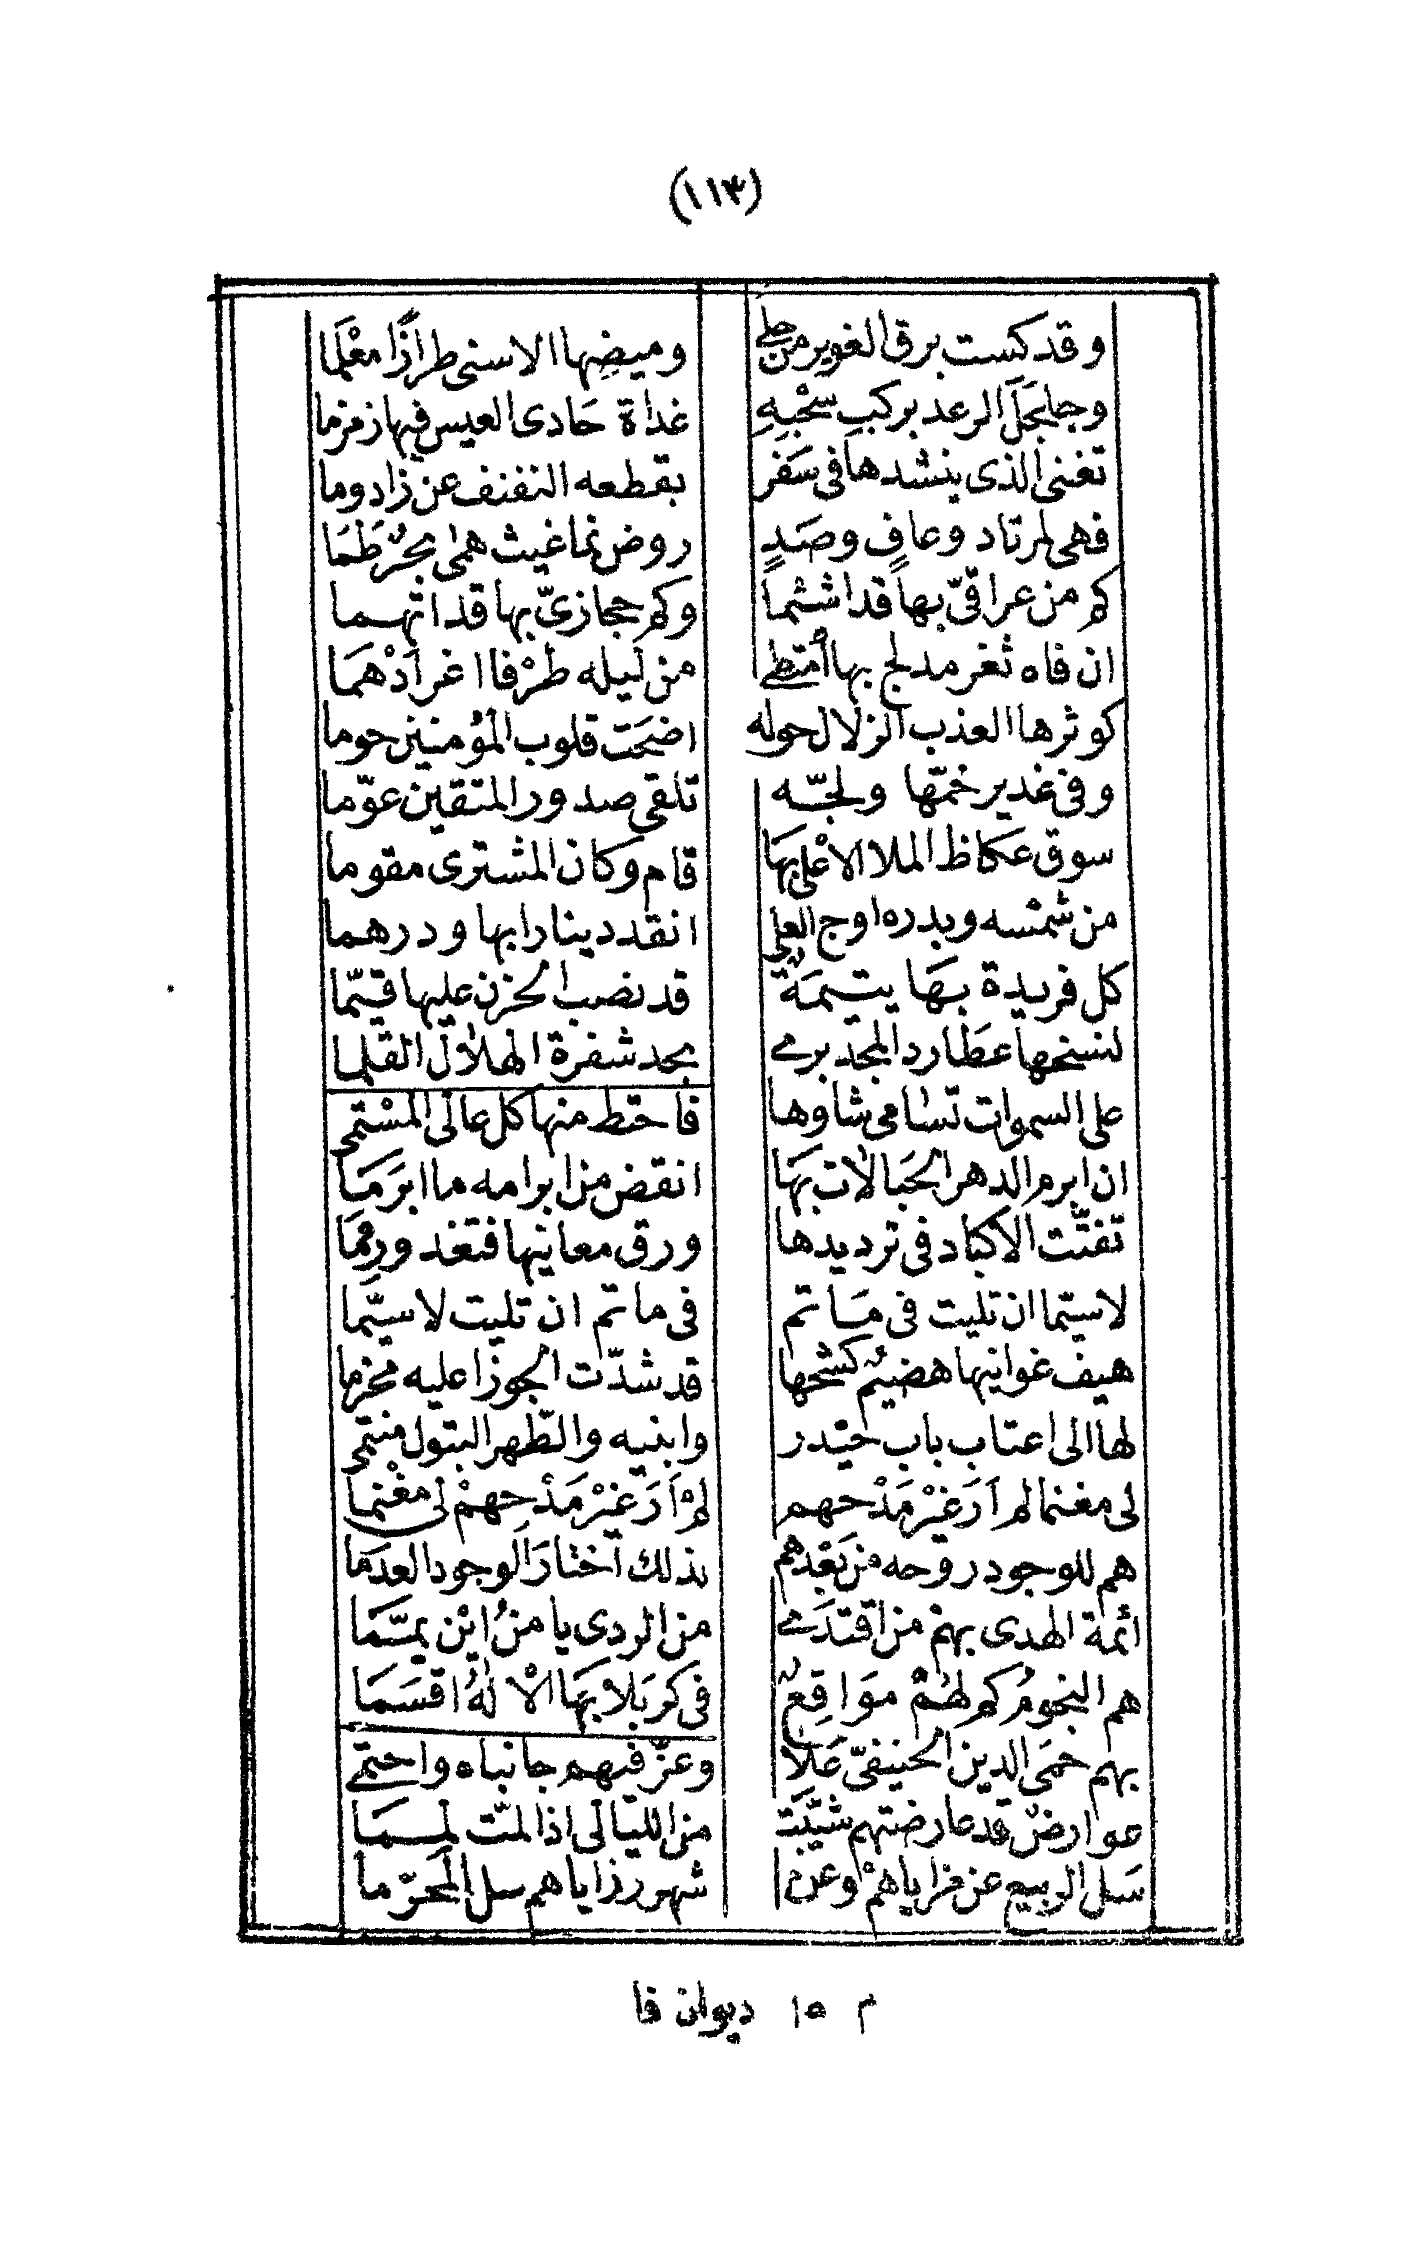 (١١٣)
وقد كست برق الغوير من حلى ومیضها الاسنى طرازًا مَعْلَما
وجلجَلَ الرعد بركب سُحْبِهِ غداة حَادى العيس فيها زمزما
تغنى الذى ينشدها فى سَفَر بقطعه النفنف عن زاد وما
فهى لمرتاد وعافٍ وصَدٍ روض نما غيث همى بحرٌ طَمَا
كم من عراقىّ بها قد اشئما وكم حجازىّ بها قد اتهما
ان فاه ثغر مدلج بها أمتطى من ليله طرْفا اغر ادْهَمَا
كوثرها العذب الزلال حوله اضحَت قلوب المؤمنين حوما
وفى غدير خمّها ولجّه تلقى صدور المتقين عوّما
سوق عكاظ الملا الاعْلى بهَا قام وكان المشترى مقوما
من شمْسه وبدره اوج العلى انقد دينارا بها ودرهما
كل فريدة بهَا يتيمَةٌ قد نصب الحزن عليها قيّما
لنسخها عطارد المجد برى بحد شفرة الهلال القلما
على السموات تسَامى شاوها فاختط منها كل عالى المسْتمى
ان ابرم الدهر الحبَالات بهَا انقض من ابرامه ما ابرَمَا
تفتّت الاكباد فى ترديدها ورق معانيها فتغدو رممَا
لاسيّما ان تليت فى مَاتم فى ماتم ان تليت لاسيّما
هيف غوانيها هضيمٌ كشحها قد شدّت الجوزا عليه محزما
لها الى اعتاب باب حيْدر وابنيه والطّهر البتول منتمى
لى مغنما لم اَرَ غيْر مَدْحهم لمْ اَرَ غيْر مَدْحِهمْ لى مغْنما
هم للوجود روحه من بَعْدهم بذلك اختارَ الوجود العدَما
ائمة الهدى بهمْ من اقتدَى من الردى يا منُ ايْن يمّمَا
هم النجومُ كم لهُمْ موَاقِعٌ فى كربَلا بهَا الالٰهُ اقسَمَا
بهم حمَى الدين الحنيفىّ عَلا وعزّ فيهم جانباه واحتمى
عوارضٌ قد عارضتهم شيّبَت من الليَالى اذا المّت لمَمَا
سَل الربيع عن مزاياهمْ وعن شهر رزاياهم سل المحرّما
م ١٥ ديوان فا